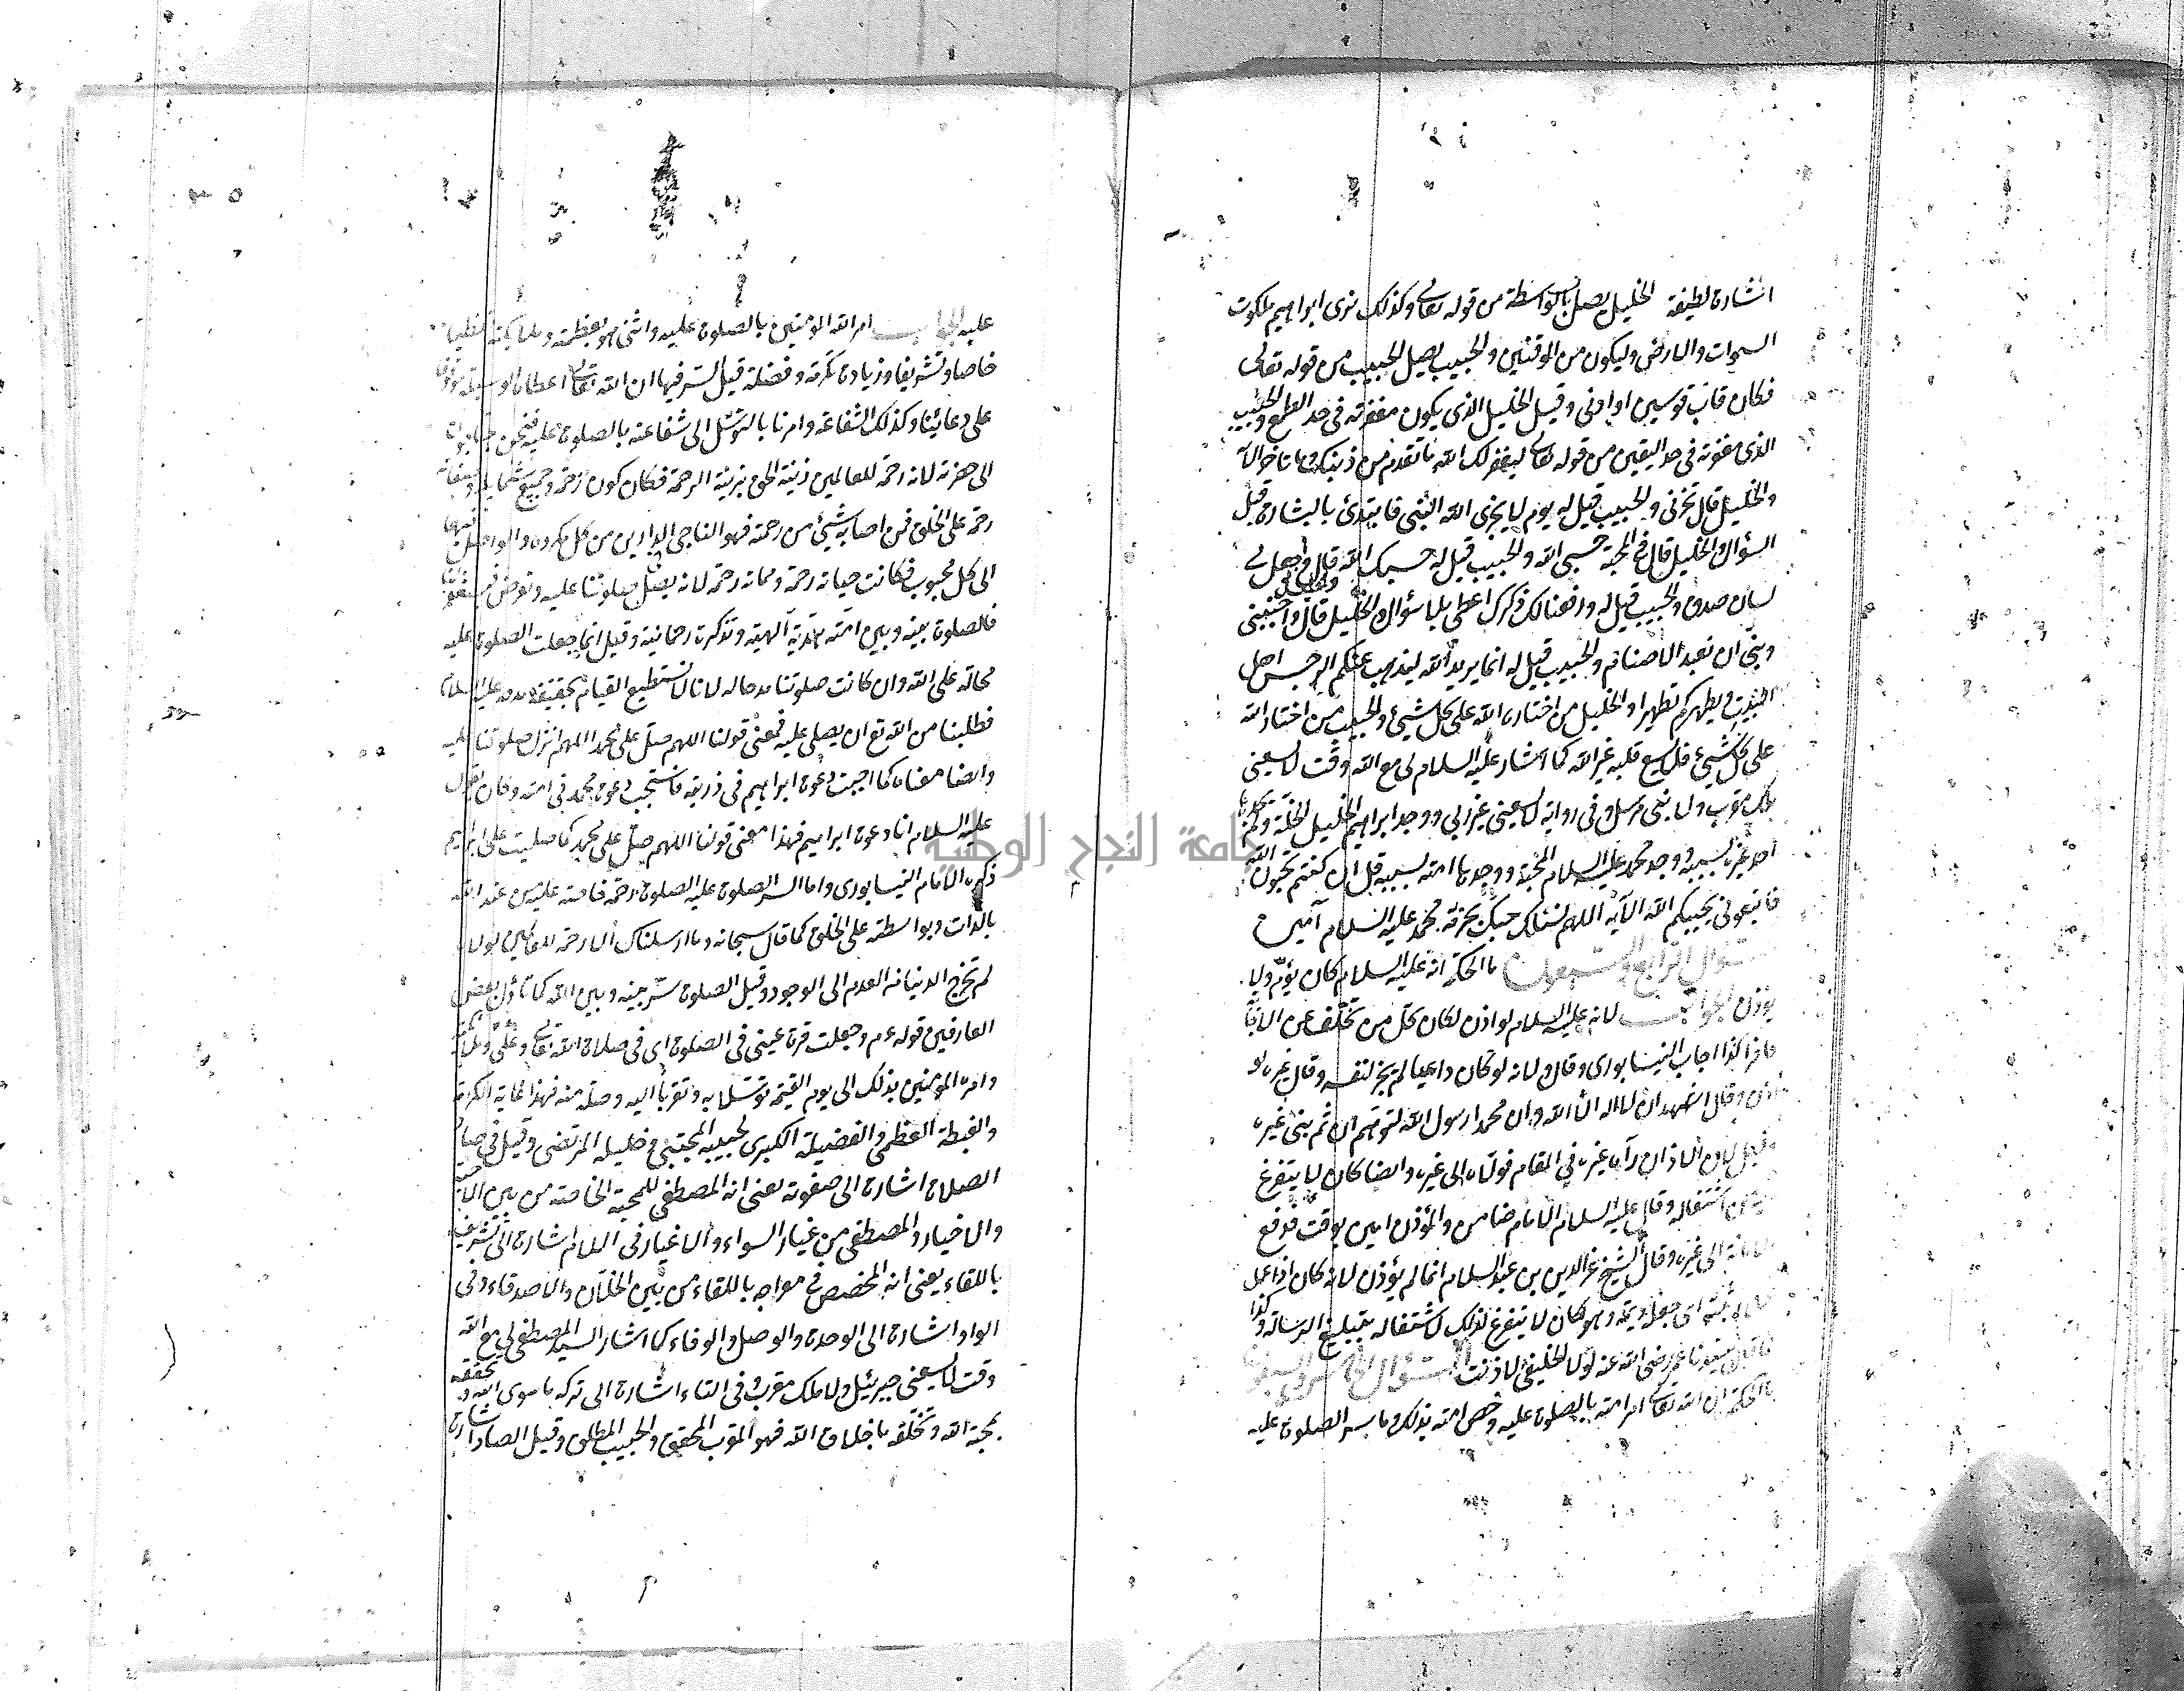 اشارة لطيفة الخليل يصل بالواسطة من قوله تعالى وكذلك نرى ابراهيم ملكوت
السموات والارض وليكون من الموقنين والحبيب يصل الحبيب من قوله تعالى
فكان قاب قوسين او ادنى وقيل الخليل الذى يكون مغفرته فى حد الطمع والحبيب
الذى مغفرته فى حد اليقين من قوله تعالى ليغفر لك الله ما تقدم من ذنبك وما تاخر الآ
والخليل قال لا تخزنى والحبيب قيل له يوم لا يخزى الله النبى فابتدئ بالبشارة قبل
السؤال والخليل قال فى المحنة حسبى الله والحبيب قيل له حسبك الله قال واجعل لى
لسان صدق والحبيب قيل له ورفعنا لك ذكرك اعطى بلا سؤال والخليل قال واجنبنى
وبنى ان نعبد الاصنام والحبيب قيل له انما يريد الله ليذهب عنكم الرجس اهل
البيت ويطهركم تطهيرا والخليل من اختاره الله على كل شيئ والحبيب من اختار الله
على كل شيئ فلم يسع قلبه غير الله كما اشار عليه السلام لى مع الله وقت لا يسعنى
ملك مقرب ولا نبى مرسل وفى رواية لا يسعنى غير ربى ووجد ابراهيم الخليل الخلة
احد غيره بسببه ووجد محمد عليه السلام المحبة ووجدها امته بسببه قل ان كنتم تحبون الله
فاتبعونى يحببكم الله الآية اللهم نسئلك حبك بحرمة محمد عليه السلام آمين
السؤال الرابع والسبعون ما الحكمة انه عليه السلام كان يؤم ولا
يؤذن الجواب لانه عليه السلام لو اذن لكان كل من تخلف عن الاجابة
كافرا كذا اجاب النيسابورى وقال ولانه لو كان داعيا لم يجز لنفسه وقال غيره لو
اذن وقال اشهد ان لا اله الا الله وان محمدا رسول الله لتوهم ان ثم نبى غيره
وقيل لان الاذان رآه غيره فى المقام فولاه الى غيره وايضا كان لا يتفرغ
اشتغاله وقال عليه السلام الامام ضامن والمؤذن امين فدفع
الامانة الى غيره وقال الشيخ عز الدين بن عبد السلام انما لم يؤذن لانه كان اذا عمل
عملا اثبته اى جعله ديمة وهو كان لا يتفرغ لذلك لاشتغاله بتبليغ الرسالة وكذا
قال سيدنا عمر رضى الله عنه لولا الخليفى لاذنت السؤال الخامس والسبعون
ما الحكمة ان الله تعالى امر امته بالصلوة عليه وخص امته بذلك وما سر الصلوة عليه
عليه الجواب امر الله المؤمنين بالصلوة عليه واثنى هو بعظمته وملائكته تعظيما
خاصا وتشريفا وزيادة تكرمة وفضلة قيل السر فيها ان الله تعالى اعطاه الوسيلة موقوفا
على دعائنا وكذلك الشفاعة وامرنا بالتوسل الى شفاعته بالصلوة عليه فنحن
الى حضرته لانه رحمة للعالمين زينة الحق بزينة الرحمة فكان كونه رحمة وجميع شمائله وصفاته
رحمة على الخلق فمن اصابه شيئ من رحمته فهو الناجى فى الدارين من كل مكروه والواصل
الى كل محبوب فكانت حياته رحمة ومماته رحمة لانه يصل صلوتنا عليه وتعرض
فالصلوة بينه وبين امته هدية آلهية وتذكرة رحمانية وقيل انما جعلت الصلوة عليه
محالة على الله وان كانت صلوتنا لانا لا نستطيع القيام بحقيقة عليه السلام
فطلبنا من الله تع ان يصلى عليه فمعنى قولنا اللهم صل على محمد اللهم انزل صلوتنا عليه
وايضا معناه كما اجبت دعوة ابراهيم فى ذريته فاستجب دعوة محمد فى امته وكان يقول
عليه السلام انا دعوة ابراهيم فهذا معنى قولنا اللهم صل على محمد كما صليت على ابراهيم
ذكره الامام النيسابورى واما السر الصلوة عليه الصلوة رحمة فاضته عليه من عند الله
بالذات وبواسطته على الخلق كما قال سبحانه وما ارسلناك الا رحمة للعالمين لولاه
لم تخرج الدنيا من العدم الى الوجود وقيل الصلوة سر بينه وبين الله كما تأول بعض
العارفين قوله ع م وجعلت قرة عينى فى الصلوة اى فى صلاة الله تعالى على وملائكته
وامره المؤمنين بذلك الى يوم القيمة توسلا به وتقربا اليه وصلة منه فهذا غاية الكرامة
والغبطة العظمى والفضيلة الكبرى لحبيبه المجتبى وخليله المرتضى وقيل فى صاد
الصلاة اشارة الى صفوته يعنى انه المصطفى للمحبة الخاصة من بين
والاخيار والمصطفى من غبار السواء والاغيار وفى اللام اشارة الى تشريفه
باللقاء يعنى انه المخصص فى معراجه باللقاء من بين الخلان والاصدقاء وفى
الواو اشارة الى الوحدة والوصل والوفاء كما اشار السيد المصطفى لى مع الله
وقت لا يسعنى جبرئيل ولا ملك مقرب وفى التاء اشارة الى تركه ما سوى الله وتحققه
بمحبة الله وتخلقه باخلاق الله فهو المقرب المحقق والحبيب المطلق وقيل الصاد اشارة
جامعة النجاح الوطنية